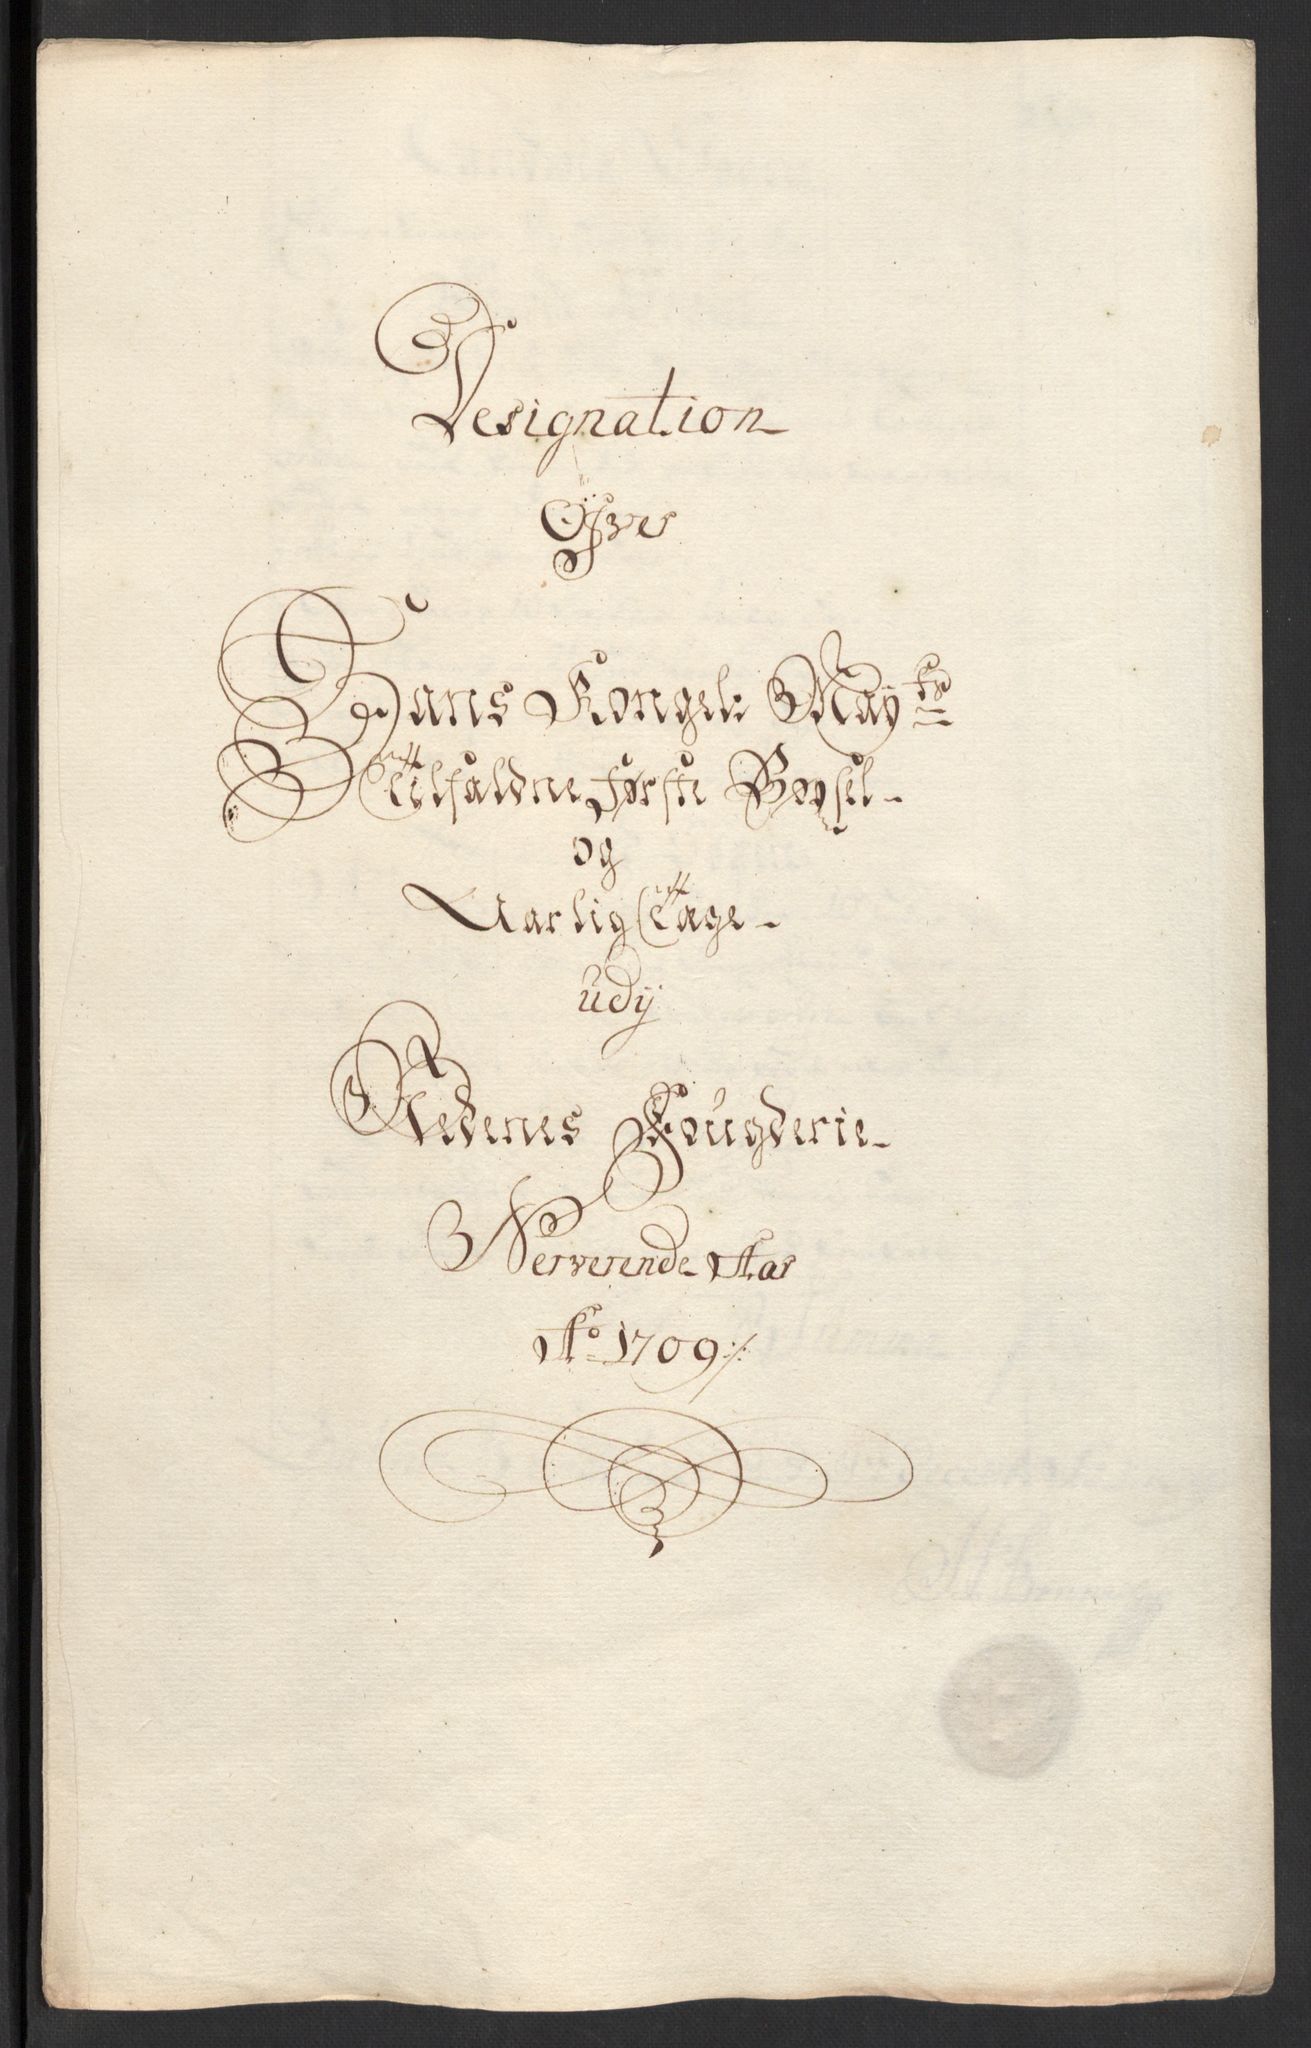 Designation
Ofver
Hans Kongel: Maÿts
Tilfaldne første Bøxsel
og
Aarlig Tage
udÿ
Nedenes Fougderie
Nerverende Aar
Ao 1709